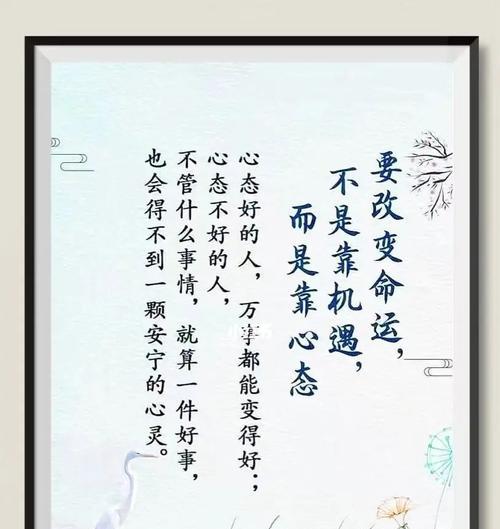 要改变命运，
不是靠机遇，
而是靠心态
心态好的人，万事都能变得好；
心态不好的人，
不管什么事情，就算一件好事，
也会得不到一颗安宁的心灵。